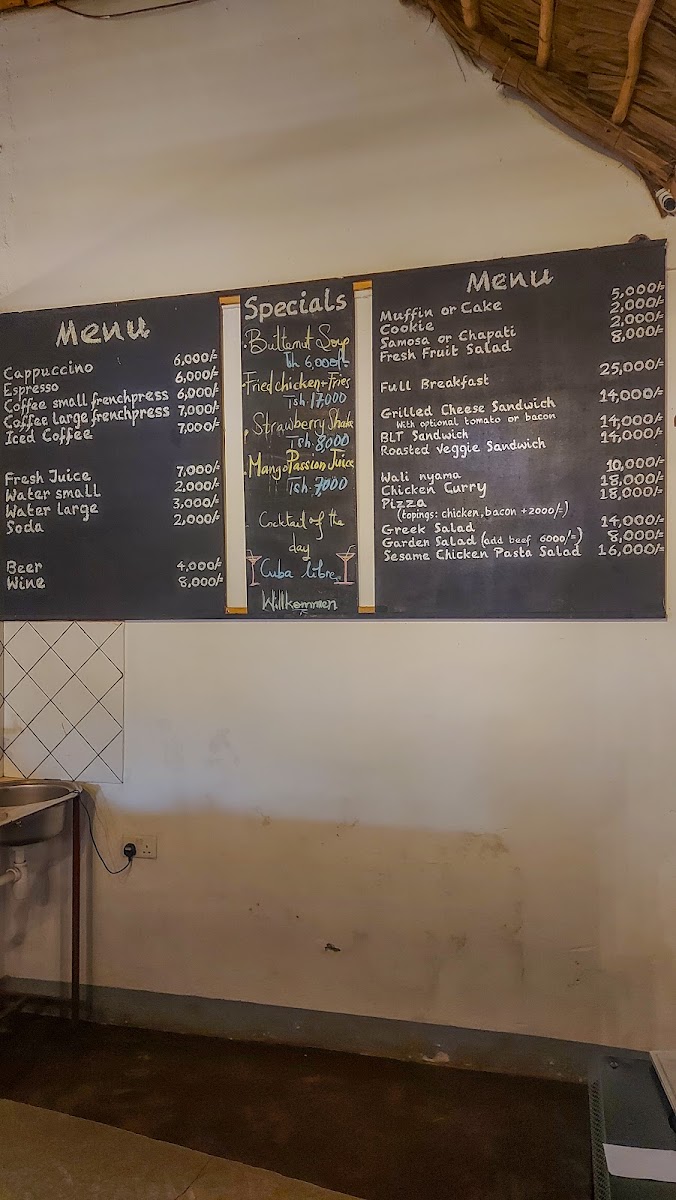 Menu
Cappuccino 6,000/=
Espresso 6,000/=
Coffee small frenchpress 6,000/=
Coffee large frenchpress 7,000/=
Iced Coffee 7,000/=
Fresh Juice 7,000/=
Water small 2,000/=
Water large 3,000/=
Soda 2,000/=
Beer 4,000/=
Wine 8,000/=
Specials
Butternut Soup
Tsh 6,000/=
Fried chicken + Fries
Tsh. 17,000
Strawberry Shake
Tsh. 8000
Mango Passion Juice
Tsh. 7000
Cocktail of the
day
Cuba libre
Willkommen
Menu
Muffin or Cake 5,000/=
Cookie 2,000/=
Samosa or Chapati 2,000/=
Fresh Fruit Salad 8,000/=
Full Breakfast 25,000/=
Grilled Cheese Sandwich 14,000/=
With optional tomato or bacon
BLT Sandwich 14,000/=
Roasted Veggie Sandwich 14,000/=
Wali nyama 10,000/=
Chicken Curry 18,000/=
Pizza 18,000/=
(topings: chicken, bacon +2000/=)
Greek Salad 14,000/=
Garden Salad (add beef 6000/=) 8,000/=
Sesame Chicken Pasta Salad 16,000/=